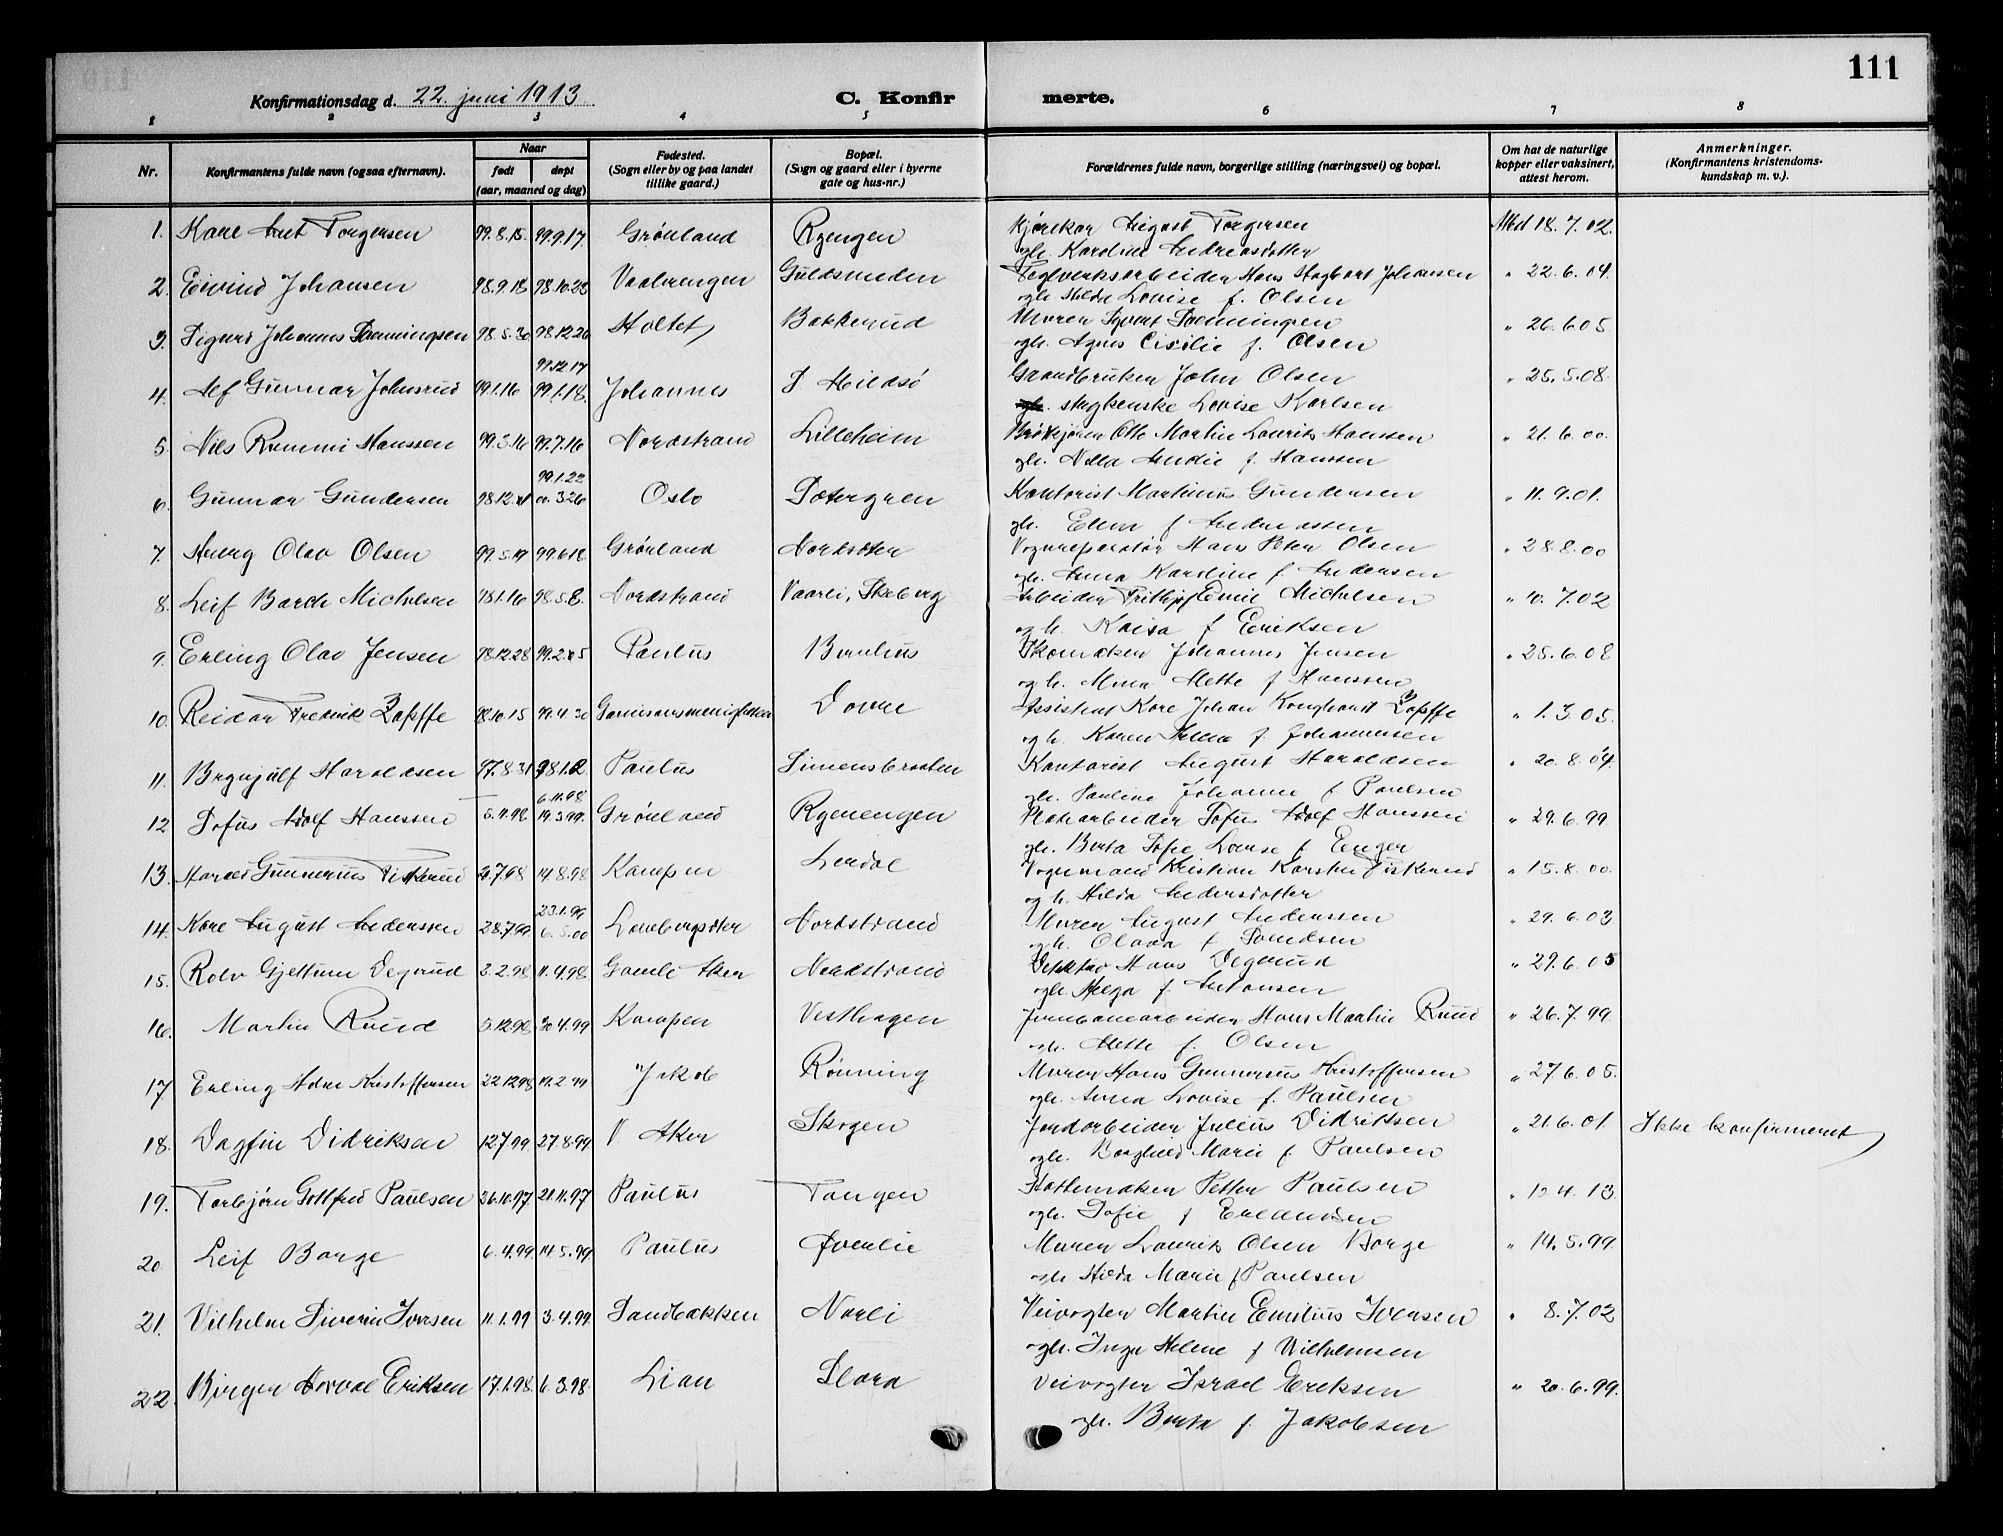 111
Konfirmationsdag d. 22. juni 1913 C. Konfirmerte.
1 2 3 4 5 6 7 8
Nr. Konfirmantens fulde navn (ogsaa efternavn). Naar født døpt (aar, maaned og dag) Fødested. (Sogn eller by og paa landet tillike gaard.) Bopæl. (Sogn og gaard eller i byerne gate og hus-nr.) Forældrenes fulde navn, borgerlige stilling (næringsvei) og bopæl. Om hat de naturlige kopper eller vaksinert, attest herom. Anmerkninger. (Konfirmantens kristendomskundskap m. v.).
1. Kaare Torgersen 99.8.15. 99.9.17 Grønland Ryengen August Torgersen Attest 18.7.02.
ogh. Karoline Andreasdatter
2. Eivind Johansen 98.9.18 98.10.23 Vaalerengen Guldsmeden Teglverksarbeider Hans Johansen " 22.6.04.
ogh. Hilda Lovise f. Olsen
3. Sigurd Johannes 98.5.30 98.12.26 Holtet Bakkerud Murer " 26.6.05
ogh. Agnes Cicilie f. Olsen
99.12.17
4. Alf Gunnar Johnsrud 99.1.16 99.1.18. Johannes S. Hildsø Grandbruker John Olsen " 25.5.08.
Lovise Karlsen
5. Nils Hanssen 99.3.16 99.7.16 Nordstrand Lilleheim Otto Martin Laurits Hanssen " 21.6.00.
ogh. f. Hanssen
99.1.22
6. Gunnar Gundersen 98.12. 00.3.26 Oslo Kontorist Martinus Gundersen " 11.9.01.
ogh. Elen f. Andersen
7. Olav Olsen 99.5.19 99.6.18 Grønland Nordseter Vognreparatør Hans Peter Olsen " 28.8.00
ogh. Anna Karoline f. Andersen
8. Leif Michelsen 98.1.16 98.5.8. Nordstrand Vaarli, Arbeider Emil Michelsen " 10.7.02
ogh. Kaisa f. Eriksen
9. Erling Olav Jensen 98.12.28 99.2. Paulus Skomaker Johannes Jensen " 25.6.08
ogh. Mina Mette f. Hanssen
10. Reidar Fredrik Zapffe 98.10.15 99.4.30 Garnisonsmenigheten Dovre Assistent Johan Zapffe " 1.3.05.
ogh. Karen f. Johannessen
11. Brynjulf Haroldsen 97.8.31 98.1.2 Paulus Simensbraaten Kontorist August Haroldsen " 20.8.04.
ogh. Pauline Johanne f. Paulsen
6.11.98
12 Sofus Adolf Hanssen 5.11.98 19.3.99. Grønland Ryenengen Sofus Adolf Hanssen " 29.6.99
ogh. Berta Sofie Lovise f. Enger
13. Harald Gunnerius Fiskerud 7.98 14.8.98 Kampen Lerdal Vognmand Kristian Karsten Fiskerud " 15.8.00.
ogh. Hilda Andersdatter
23.1.99
14. Kaare August Anderssen 28.7.99. 6.5.00 Nordstrand Murer August Anderssen " 29.6.03
ogh. Olava f. Svendsen
15. Rolv Gjettum Degerud 2.2.98 11.4.98. Gamle Aker Nordstrand Hans Degerud " 29.6.05
ogh. Helga f. Antonsen
16. Martin Ruud 5.12.98 30.4.99 Kampen Vesthagen Jernbanearbeider Hans Martin Ruud " 26.7.99.
ogh. Mette f. Olsen
17 Erling Kristoffersen 22.12.98 2.99 Jakob Rønning Murer Hans Gunnerius Kristoffersen " 27.6.05.
ogh. Anna Lovise f. Paulsen
18. Dagfin Didriksen 12.7.99. 27.8.99 V. Aker Skogen Jordarbeider Julius Didriksen " 21.6.01 Ikke konfirmeret
ogh. Borghild Marie f. Paulsen
19. Torbjørn Gottfred Paulsen 26.10.97. 21.11.97 Paulus Tangen Hattemaker Petter Paulsen " 12.4.13.
ogh. Sofie f. Erlandsen
20. Leif Borge 6.4.99. 14.5.99. Paulus Øverlie Murer Laurits Olsen Borge " 14.5.99.
ogh. Hilda Marie f. Paulsen
21. Vilhelm Severin Iversen 11.1.99 3.4.99. Sandbakken Norli Veivogter Martin Emilius Iversen " 8.7.02
ogh. Inga Helene f. Wilhelmsen
22. Birger Eriksen 17.1.98. 6.3.98. Lian Slora Veivogter Israel Eriksen " 20.6.99.
ogh. Berta f. Jakobsen